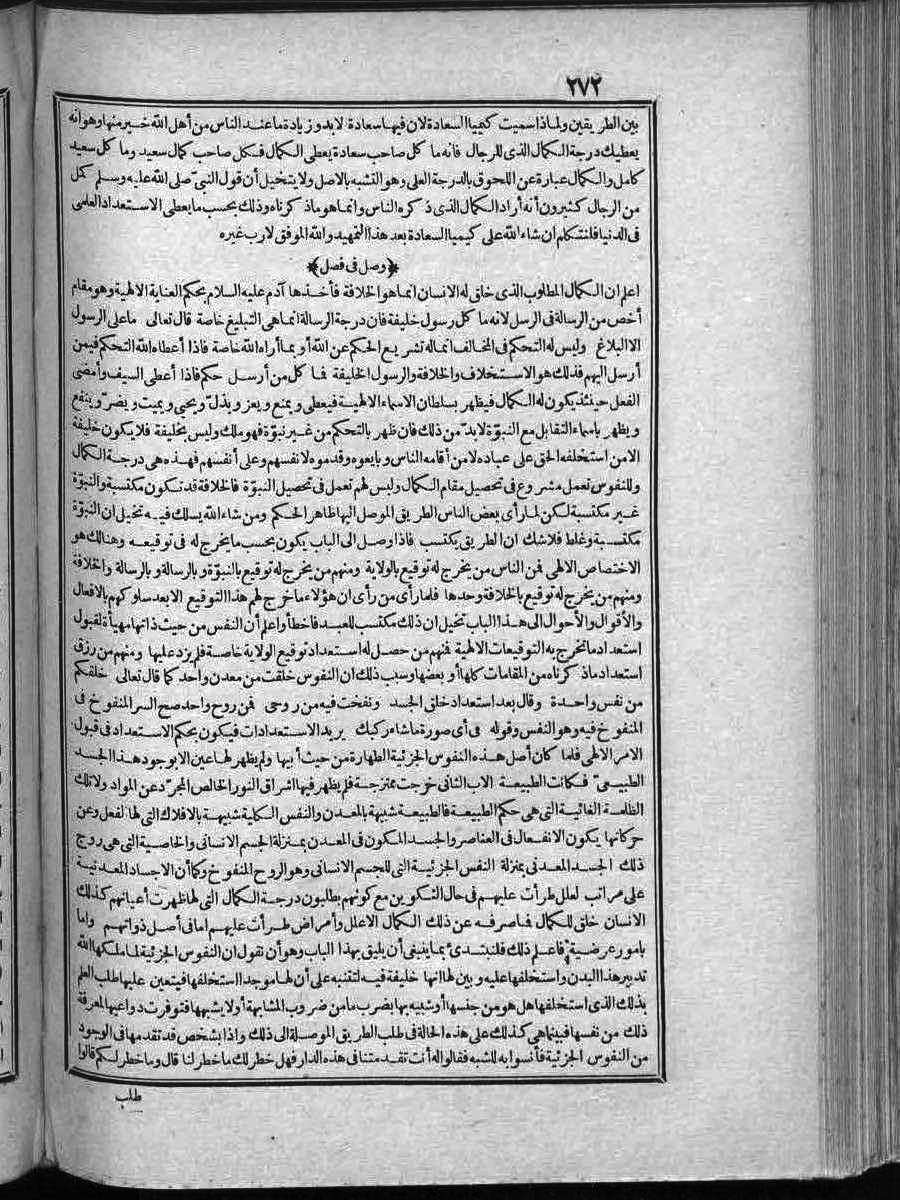 ٢٧٢
بين الطريقين ولماذا سميت كيمياء السعادة لان فيها سعادة لابد وزيادة ما عند الناس من أهل الله خبر منها وهو انه
يعطيك درجة الكمال الذى للرجال فانه ما كل صاحب سعادة يعطى الكمال فكل صاحب كمال سعيد وما كل سعيد
كامل والكمال عبارة عن اللحوق بالدرجة العلى وهو التشبه بالاصل ولا يتخيل أن قول النبىّ صلى الله عليه وسلم كمل
من الرجال كثيرون أنه أراد الكمال الذى ذكره الناس وانما هو ماذكرناه وذلك بحسب ما يعطى الاستعداد العلمى
فى الدنيا فلنتكلم ان شاء الله على كيمياء السعادة بعد هذا التمهيد والله الموفق لا رب غيره
﴿وصل فى فصل﴾
اعلم ان الكمال المطلوب الذى خلق له الانسان انما هو الخلافة فأخذها آدم عليه السلام بحكم العناية الالهية وهو مقام
أخص من الرسالة فى الرسل لانه ما كل رسول خليفة فان درجة الرسالة انما هى التبليغ خاصة قال تعالى ما على الرسول
الا البلاغ وليس له التحكم فى المخالف انما له تشريع الحكم عن الله أو بما أراه الله خاصة فاذا أعطاه الله التحكم فيمن
أرسل اليهم فذلك هو الاستخلاف والخلافة والرسول الخليفة فما كل من أرسل حكم فاذا أعطى السيف وأمضى
الفعل حينئذ يكون له الكمال فيظهر بسلطان الاسماء الالهية فيعطى ويمنع ويعز ويذلّ ويحيى ويميت ويضرّ وينفع
ويظهر بأسماء التقابل مع النبوّة لابدّ من ذلك فان ظهر بالتحكم من غير نبوّة فهو ملك وليس بخليفة فلا يكون خليفة
الا من استخلفه الحق على عباده لا من أقامه الناس وبايعوه وقدموه لانفسهم وعلى أنفسهم فهذه هى درجة الكمال
وللنفوس تعمل مشروع فى تحصيل مقام الكمال وليس لهم تعمل فى تحصيل النبوّة فالخلافة قد تكون مكتسبة والنبوّة
غير مكتسبة لكن لما رأى بعض الناس الطريق الموصل اليها ظاهر الحكم ومن شاء الله يسلك فيه تخيل ان النبوّة
مكتسبة وغلط فلاشك ان الطريق يكتسب فاذا وصل الى الباب يكون بحسب ما يخرج له فى توقيعه وهنالك هو
الاختصاص الالهى فمن الناس من يخرج له توقيع بالولاية ومنهم من يخرج له توقيع بالنبوّة وبالرسالة وبالرسالة والخلافة
ومنهم من يخرج له توقيع بالخلافة وحدها فلما رأى من رأى ان هؤلاء ما خرج لهم هذا التوقيع الا بعد سلوكهم بالافعال
والأقوال والأحوال الى هذا الباب تخيل ان ذلك مكتسب للعبد فاخطأ واعلم أن النفس من حيث ذاتها مهيأة لقبول
استعداد ما تخرج به التوقيعات الالهية فمنهم من حصل له استعداد توقيع الولاية خاصة فلم يزد عليها ومنهم من رزق
استعداد ماذكرناه من المقامات كلها أو بعضها وسبب ذلك ان النفوس خلقت من معدن واحد كما قال تعالى خلقكم
من نفس واحدة وقال بعد استعداد خلق الجسد ونفخت فيه من روحى فمن روح واحد صح السر المنفوخ فى
المنفوخ فيه وهو النفس وقوله فى أى صورة ما شاء ركبك يريد الاستعدادات فيكون بحكم الاستعداد فى قبول
الامر الالهى فلما كان أصل هذه النفوس الجزئية الطهارة من حيث أبيها ولم يظهر لها عين الا بوجود هذا الجسد
الطبيعىّ فكانت الطبيعة الاب الثانى خرجت ممتزجة فلم يظهر فيها اشراق النور الخالص المجرّد عن المواد ولا تلك
الظلمة الغائية التى هى حكم الطبيعة فالطبيعة شبيهة بالمعدن والنفس الكلية شبيهة بالافلاك التى لها الفعل وعن
حركاتها يكون الانفعال فى العناصر والجسد المكون فى المعدن بمنزلة الجسم الانسانى والخاصية التى هى روح
ذلك الجسد المعدنى بمنزلة النفس الجزئية التى للجسم الانسانى وهو الروح المنفوخ وكما أن الاجساد المعدنية
على مراتب لعلل طرأت عليهم فى حال التكوين مع كونهم يطلبون درجة الكمال التى لها ظهرت أعيانهم كذلك
الانسان خلق للكمال فما صرفه عن ذلك الكمال الا علل وأمراض طرأت عليهم اما فى أصل ذواتهم واما
بامور عرضية فاعلم ذلك فلنبتدئ بما ينبغى أن يليق بهذا الباب وهو أن نقول ان النفوس الجزئية لما ملكها الله
تدبير هذا البدن واستخلفها عليه وبين لها انها خليفة فيه لتتنبه على أن لها موجدا استخلفها فيتعين عليها طلب العلم
بذلك الذى استخلفها هل هو من جنسها أو شبيه بها بضرب ما من ضروب المشابهة أو لا يشبهها فتوفرت دواعيها لمعرفة
ذلك من نفسها فبينما هى كذلك على هذه الحالة فى طلب الطريق الموصلة الى ذلك واذا بشخص قد تقدمها فى الوجود
من النفوس الجزئية فأنسوا به للشبه فقالوا له أنت تقدمتنا فى هذه الدار فهل خطر لك ما خطر لنا قال وما خطر لكم قالوا
طلب